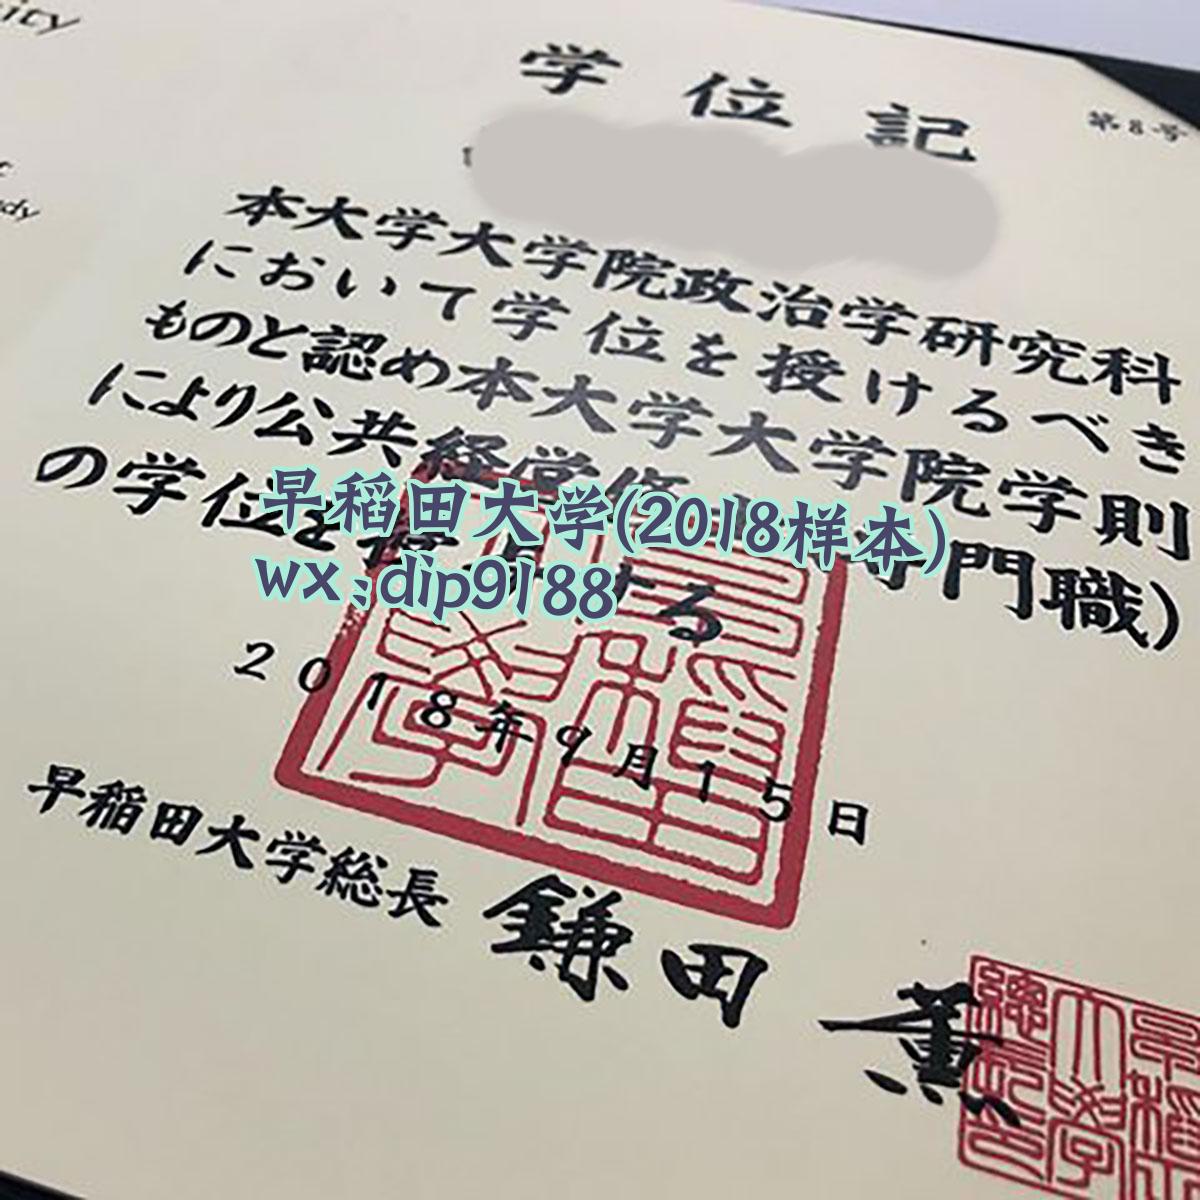 学位記
第8号
本大学大学院政治学研究科
において学位を授けるべき
ものと認め本大学大学院学則
により公共経営修 専門職)
の学位を授与する
早稻田大学(2018样本)
wx:dip9188
2018年9月15日
早稲田大学総長 鎌田 薫